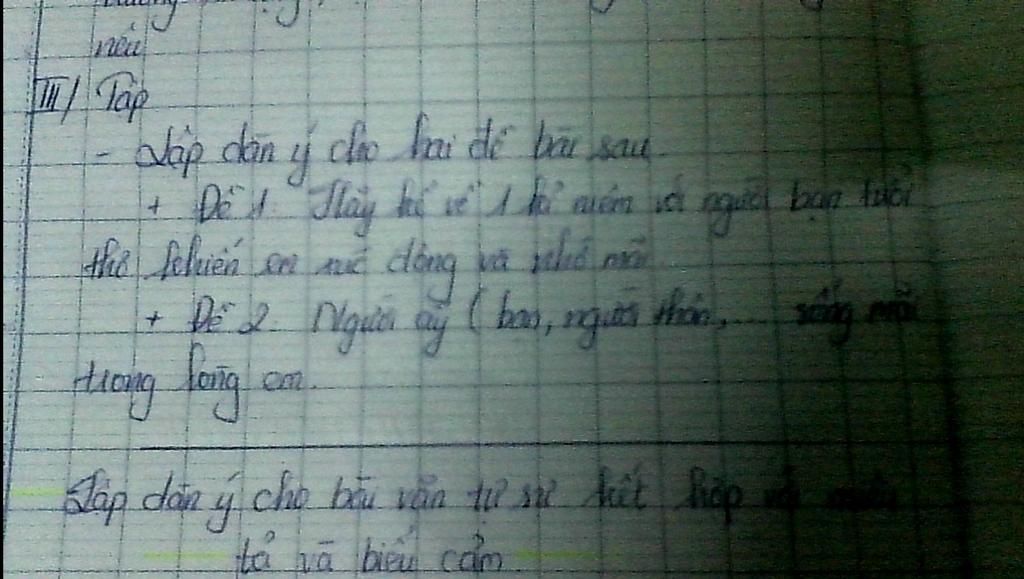 nêu
III/ Tập
- Lập dàn ý cho hai đề bài sau
+ Đề 1. Hãy kể về 1 kỉ niệm với người bạn tuổi
thơ khiến em xúc động và nhớ mãi.
+ Đề 2. Người ấy (bạn, người thân, ... sống mãi
trong lòng em.
Lập dàn ý cho bài văn tự sự kết hợp với miêu
tả và biểu cảm.